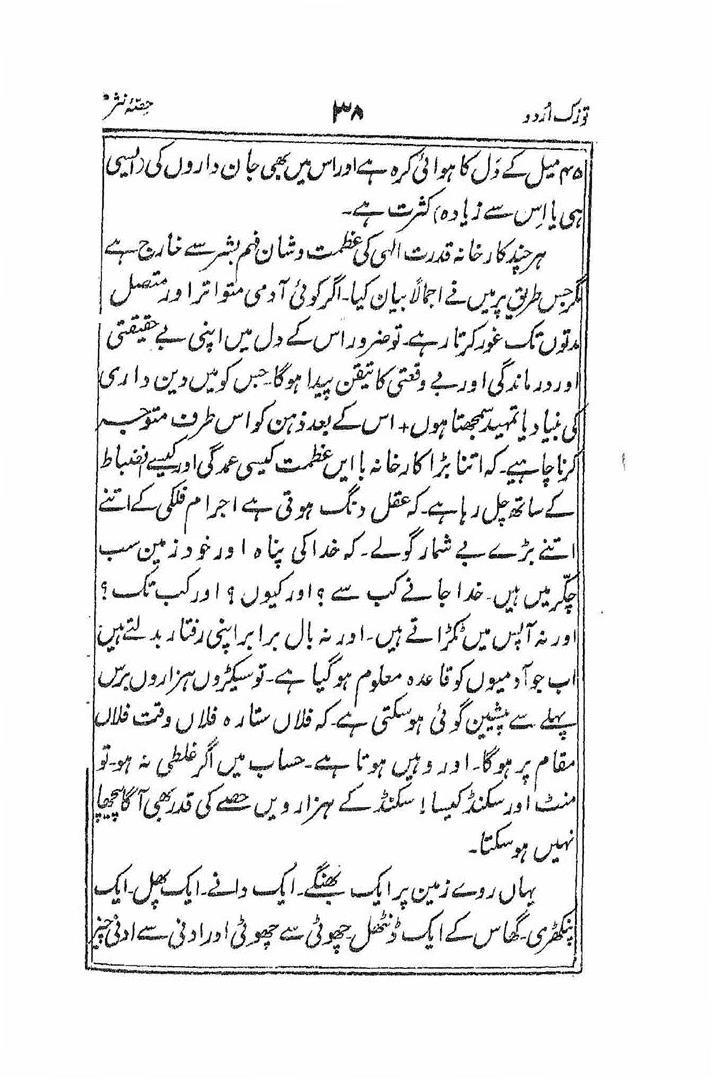 توزک اُردو ۳۸ حصّۂ نثر
۴۵ میل کے دَل کا ہوائی کرہ ہے اور اس میں بھی جان داروں کی (ایسی
ہی یا اِس سے زیادہ) کثرت ہے۔
ہر چند کارخانہ قدرت الٰہی کی عظمت و شان فہم بشر سے خارج ہے
مگر جس طریق پر میں نے اجمالاً بیان کیا۔ اگر کوئی آدمی متواتر اور متصل
مدتوں تک غور کرتا رہے۔ تو ضرور اس کے دل میں اپنی بے حقیقتی
اور درماندگی اور بے وقعتی کا تیقن پیدا ہوگا۔ جس کو میں دین داری
کی بنیاد یا تمہید سمجھتا ہوں + اس کے بعد ذہن کو اس طرف متوجہ
کرنا چاہیے۔ کہ اتنا بڑا کارخانہ باایں عظمت کیسی عمدگی اور کیسے انضباط
کے ساتھ چل رہا ہے۔ کہ عقل دنگ ہوتی ہے اجرام فلکی کے اتنے
اتنے بڑے بے شمار گولے۔ کہ خدا کی پناہ اور خود زمین سب
چکّر میں ہیں۔ خدا جانے کب سے ؟ اور کیوں ؟ اور کب تک ؟
اور نہ آپس میں ٹکراتے ہیں۔ اور نہ بال برابر اپنی رفتار بدلتے ہیں
اب جو آدمیوں کو قاعدہ معلوم ہوگیا ہے۔ تو سیکڑوں ہزاروں برس
پہلے سے پیشین گوئی ہوسکتی ہے۔ کہ فلاں ستارہ فلاں وقت فلاں
مقام پر ہوگا۔ اور وہیں ہوتا ہے۔ حساب میں اگر غلطی نہ ہو۔ تو
منٹ اور سکنڈ کیسا! سکنڈ کے ہزارویں حصے کی قدر بھی آگا پیچھا
نہیں ہوسکتا۔
یہاں روے زمین پر ایک بھنگے۔ ایک دانے۔ ایک پھل۔ ایک
پنکھڑی۔ گھاس کے ایک ڈنٹھل۔ چھوٹی سے چھوٹی اور ادنی سے ادنیٰ چیز